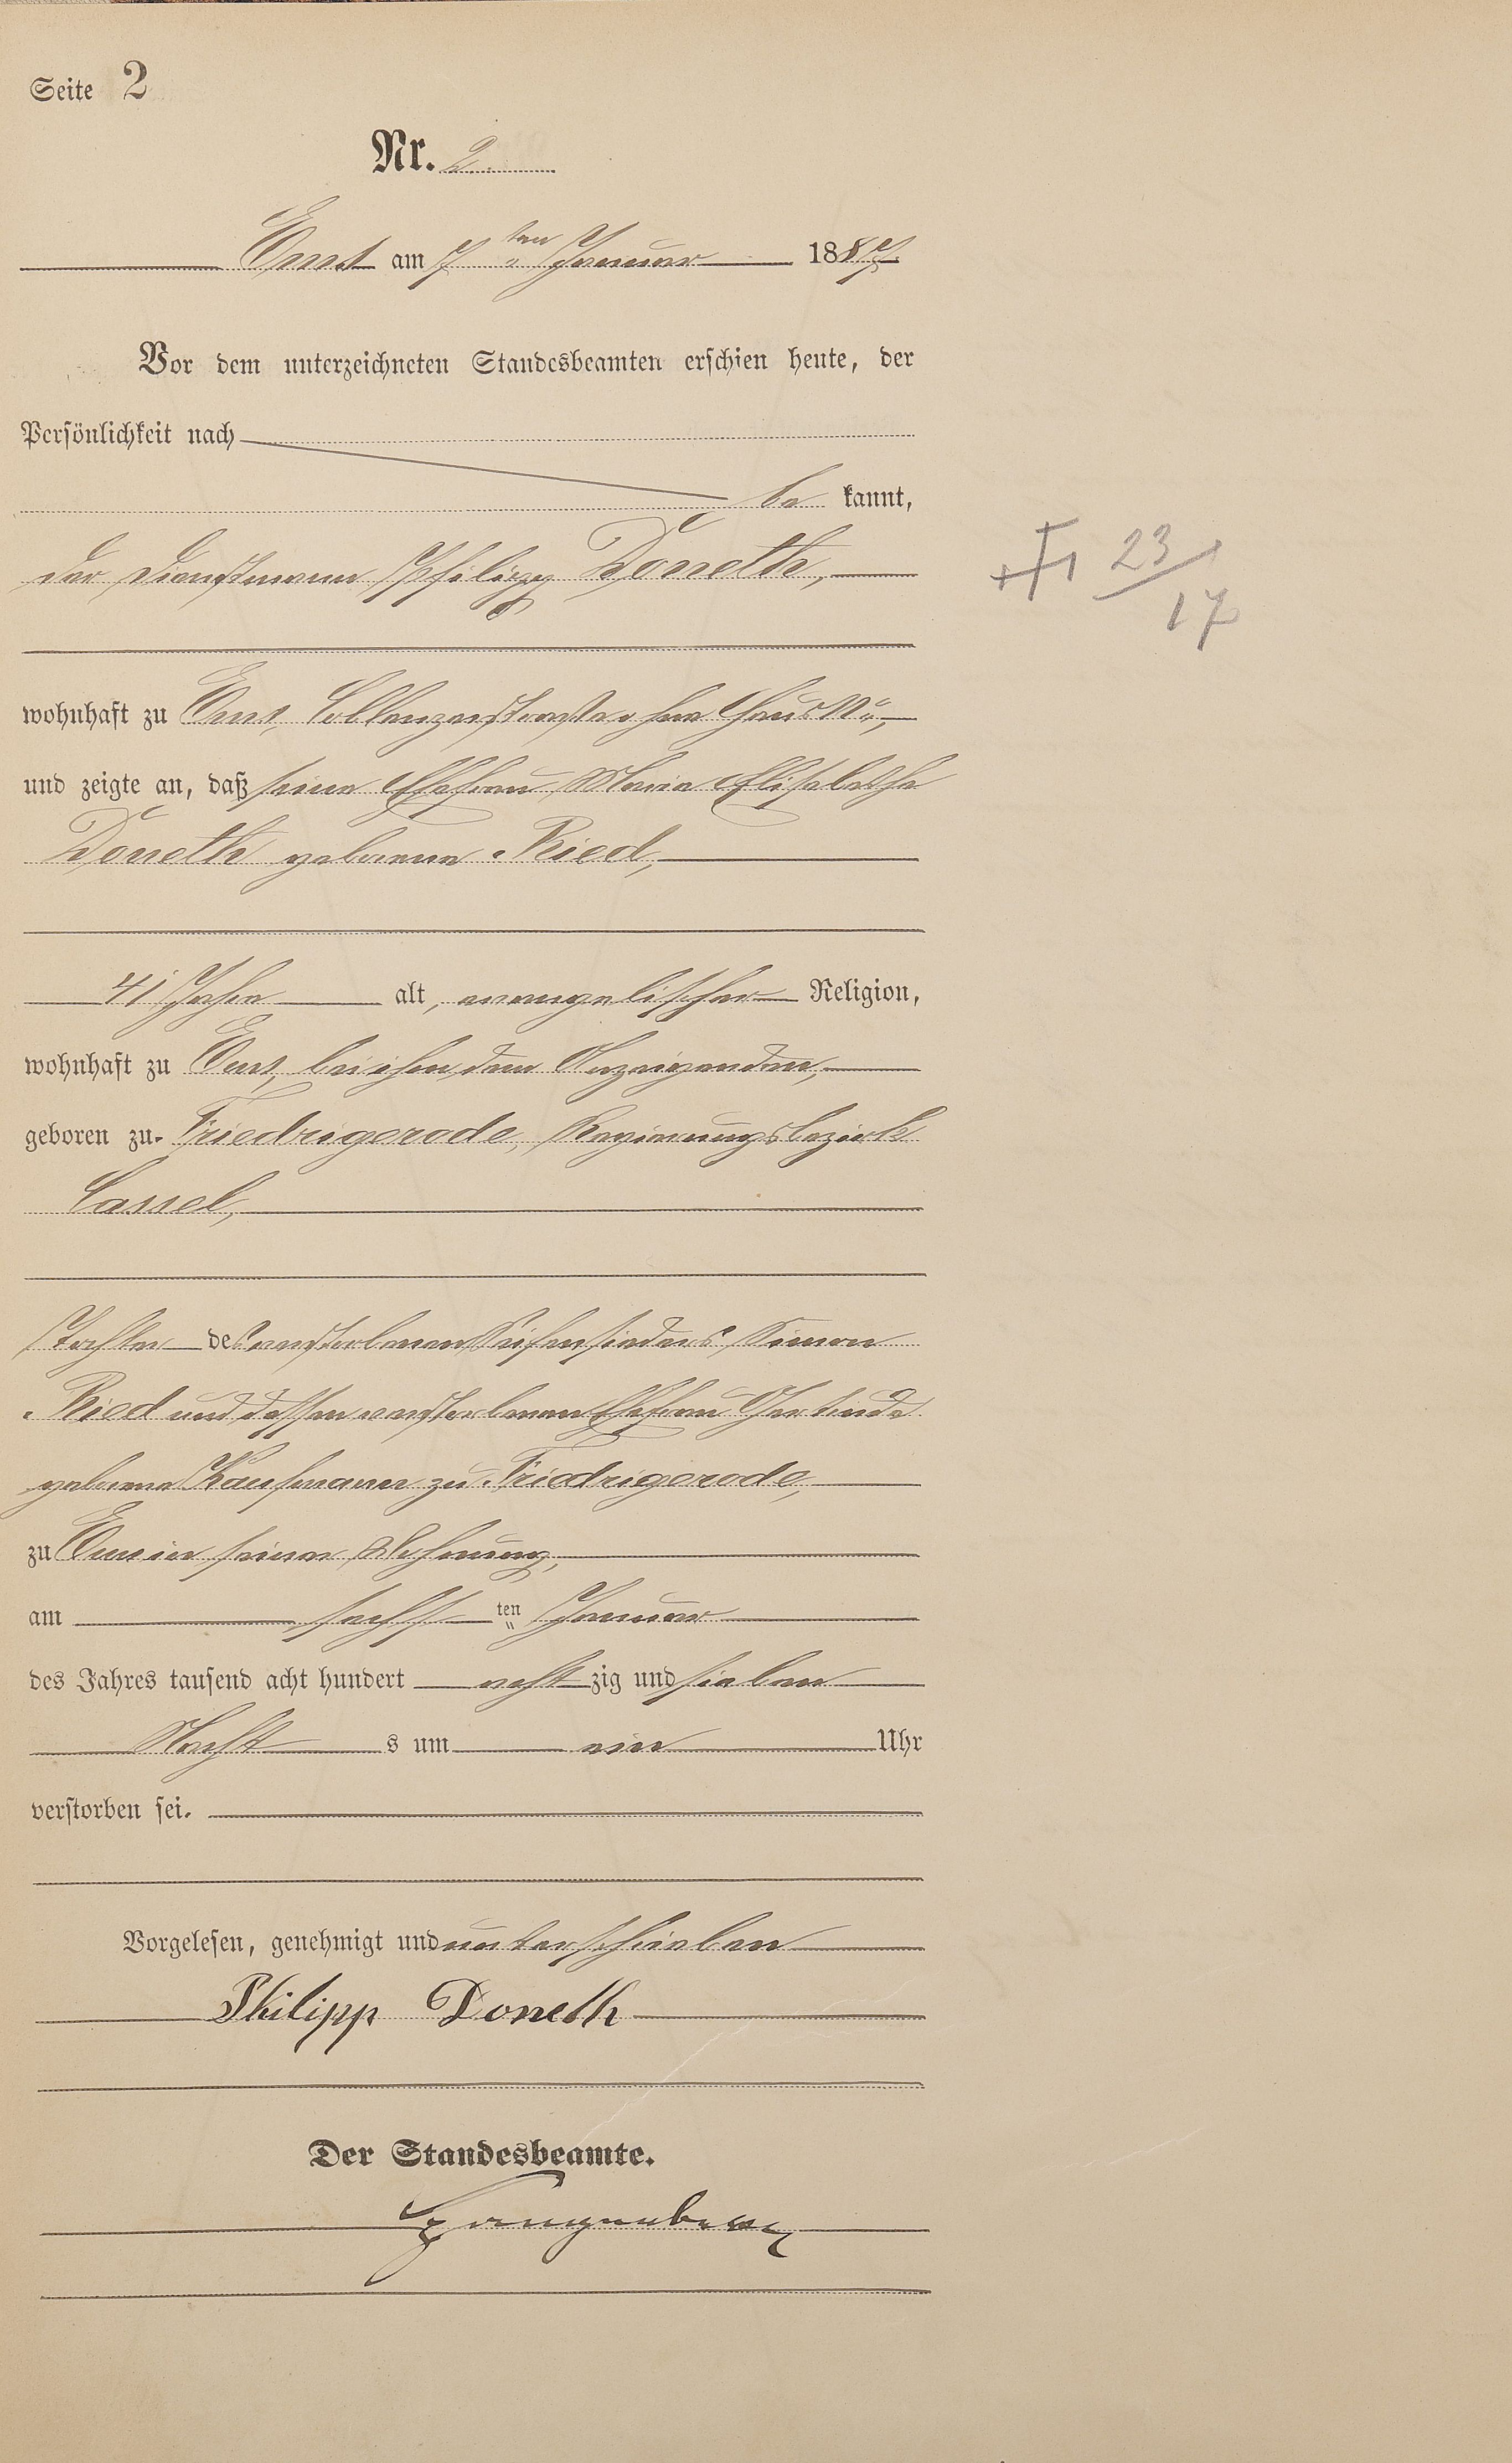 Seite 2
Nr. 2.
Ems am 7 ten Januar 1887.
Vor dem unterzeichneten Standesbeamten erschien heute, der
Persönlichkeit nach
be kannt,
der Dienstmann Philipp Doneth,
23/1
17
wohnhaft zu Ems, Coblenzerstraße ohne Haus No,
und zeigte an, daß seine Ehefrau Maria Elisabethe
Doneth geborene Ried,
41 Jahre alt, evangelischer Religion,
wohnhaft zu Ems, bei ihm, dem Anzeigenden,
geboren zu Friedrigerode, Regierungsbezirk
Cassel,
Tochter des verstorbenen Seifensieders Simon
Ried und dessen verstorbenen Ehefrau Gertrude
geborene Kaufmann zu Friedrigerode,
zu Ems in seiner Wohnung,
am sechsten Januar
des Jahres tausend acht hundert acht zig und sieben
Nacht s um ein Uhr
verstorben sei.
Vorgelesen, genehmigt und unterschrieben
Philipp Doneth
Der Standesbeamte.